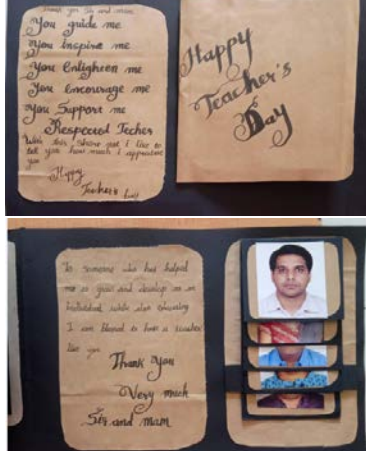 Thank you Sir and mam
You guide me
You inspire me
You Enlighten me
You encourage me
You Support me
Respected Techer
With this Show not I like to
tell you how much I appreciate
you
Happy
Teacher's
Day
Happy
Teacher's
Day
To someone who has helped
me to grow and develop as an
individual while also
I am blessed to have a teacher
like you
Thank You
Very much
Sir and mam